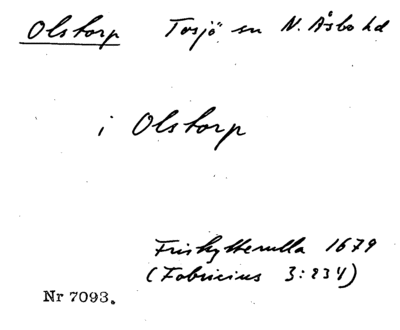 Olstorp Tosjö sn N. Åsbo hd
i Olstorp
Friskytterulla 1679
(Fabricius 3:234)
Nr 7093.